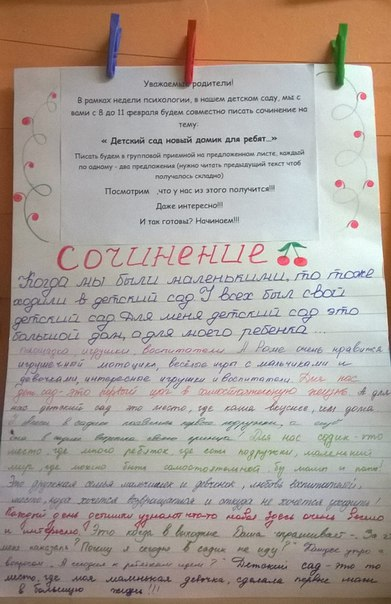 Уважаемые родители!
В рамках недели психологии, в нашем детском саду, мы с
вами с 8 до 11 февраля будем совместно писать сочинение на
тему:
« Детский сад новый домик для ребят...»
Писать будем в групповой приемной на предложенном листе, каждый
по одному - два предложения (нужно читать предыдущий текст чтоб
получалось складно)
Посмотрим ,что у нас из этого получится!!!
Даже интересно!!!
И так готовы? Начинаем!!!
Сочинение
Когда мы были маленькими, то тоже
ходили в детский сад. У всех был свой
детский сад. Для меня детский сад это
большой дом, а для моего ребенка ...
площадка игрушки, воспитатели. А Роме очень нравится
игрушечной мотоцикл, весёлые игры с мальчиками и
девочками, интересные игрушки и воспитатели. Для нас
дет. сад - это первый шаг в самостоятельную жизнь. А для
нас детский сад это место, где каша вкуснее, чем дома
в садике появились первые подружки, а ещё
она в первые встретила своего принца. Для нас садик - это
место где много ребяток, где есть подружки, маленький
мир где можно быть самостоятельной без мамы и папы.
Это дружная семья мальчишек и девчонок, любовь воспитателей,
место, куда хочется возвращаться и откуда не хочется уходить!
Каждый день детишки узнают что-то новое. Здесь очень весело
и интересно. Это когда в выходные Саша спрашивает - За что
меня наказали? Почему я сегодня в садик не иду?" Каждое утро с
вопросом „А сегодня к ребяткам идем?" Детский сад - это то
место, где моя маленькая девочка, сделала первые шаги
в большую жизнь!!!